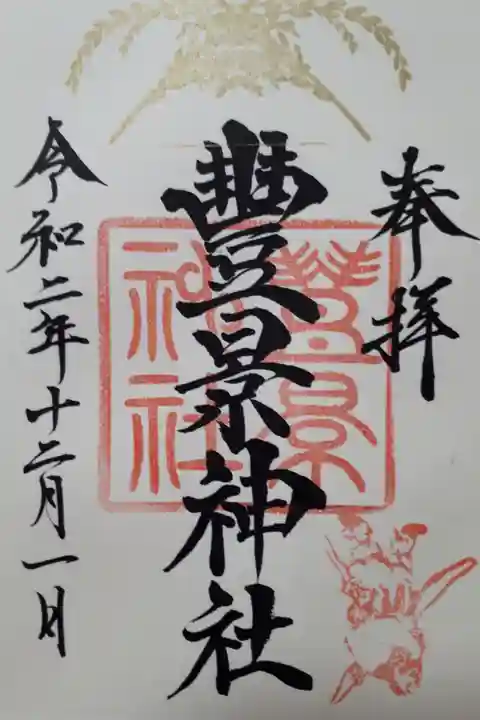 奉拝
豊景神社
豊景神社
令和二年十二月一日